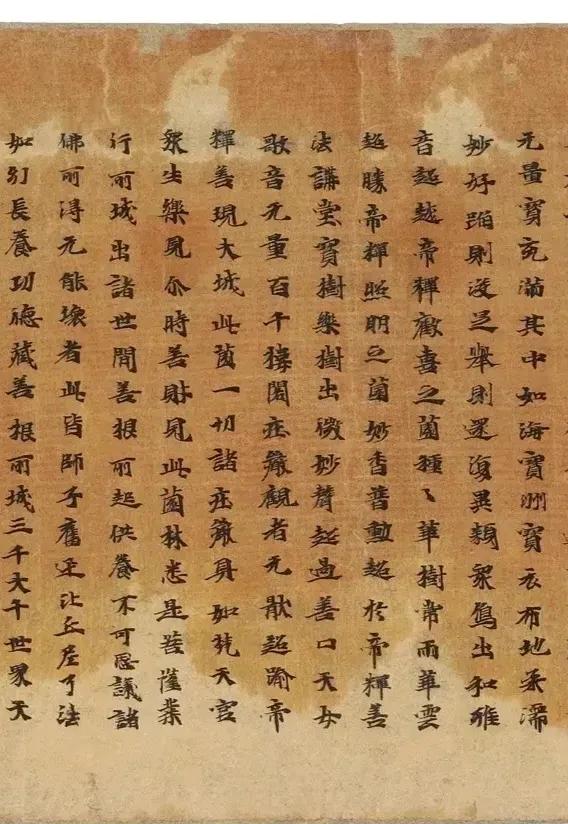 无量寶充滿其中如海寶洲寶衣布地柔濡
妙好蹈則沒足舉則還復異類衆鳥出和雅
音超越帝釋歡喜之薗種〻華樹常雨華雲
超勝帝釋照明之薗妙香普勳超於帝釋善
法講堂寶樹樂樹出微妙聲超過善口天女
歌音无量百千樓閣莊嚴觀者无猒超踰帝
釋善現大城此薗一切諸莊嚴具如梵天宮
衆生樂見尒時善財見此薗林悉是菩薩業
行所成出諸世間善根所起供養不可思議諸
佛所得无能壞者此皆師子奮迅比丘尼了法
如幻長養功德藏善根所成三千大千世界天